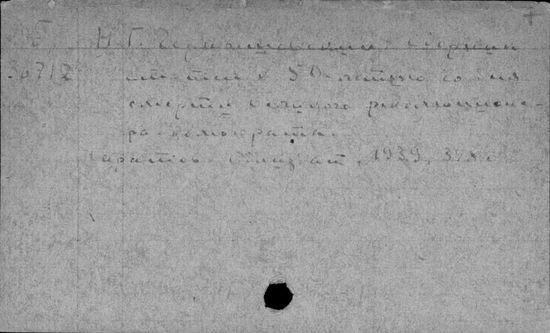 Б Н. Г. Чернышевский. Сборник
30712 статей к 50-летию со дня
смерти великого революционе-
ра-демократа.
Саратов. Облгиз, 1939,